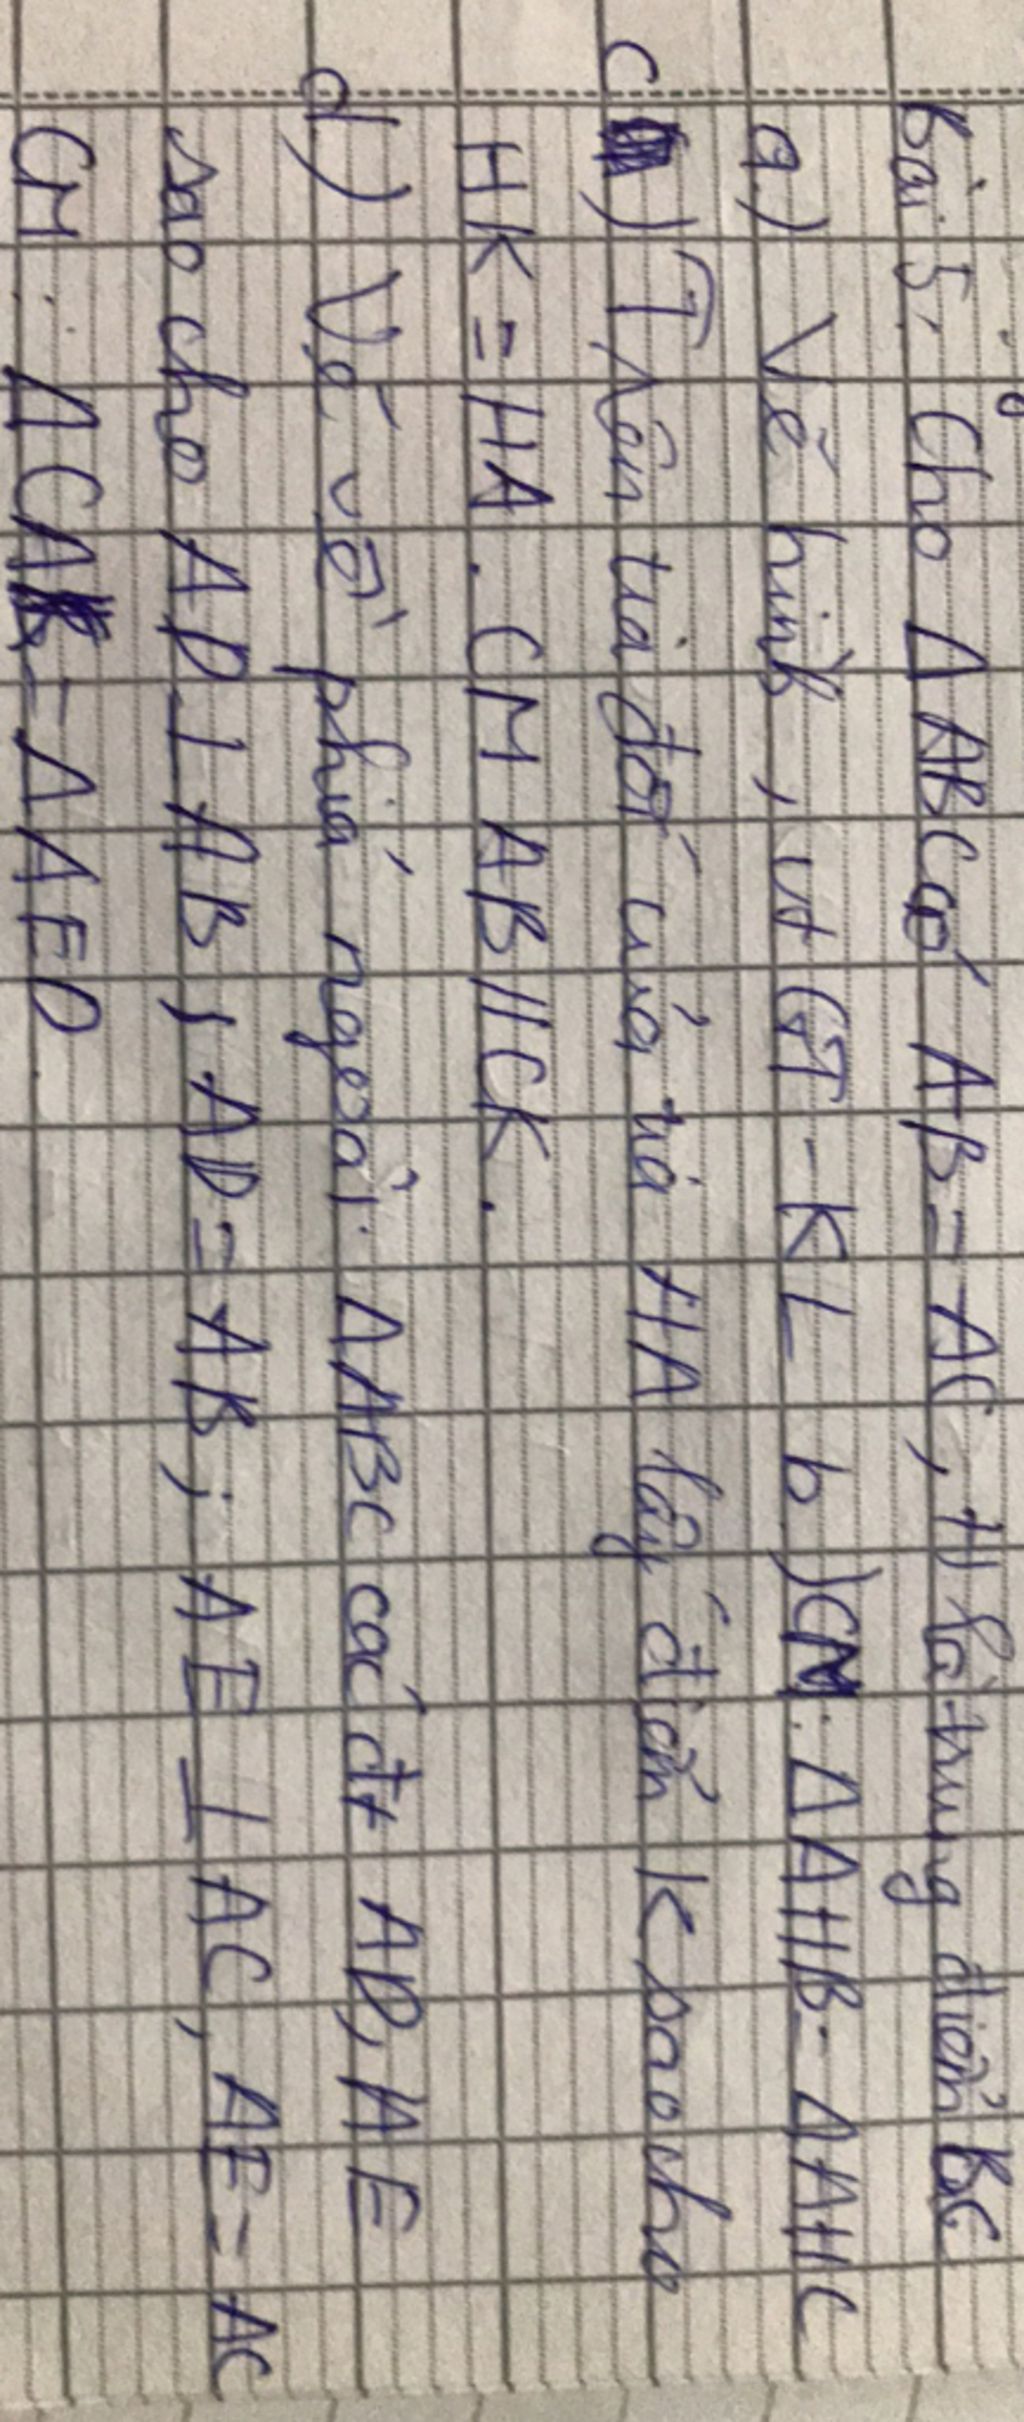 Bài 5. Cho Δ ABC có AB = AC, H là trung điểm BC
a) Vẽ hình, vt GT - KL b) CM: Δ AHB = Δ AHC
c) Trên tia đối của tia HA lấy điểm K sao cho
HK = HA. CM AB // CK.
d) Vẽ về phía ngoài Δ ABC các đt AD, AE
sao cho AD ⊥ AB; AD = AB; AE ⊥ AC, AE = AC
CM: Δ CAK = Δ AED.